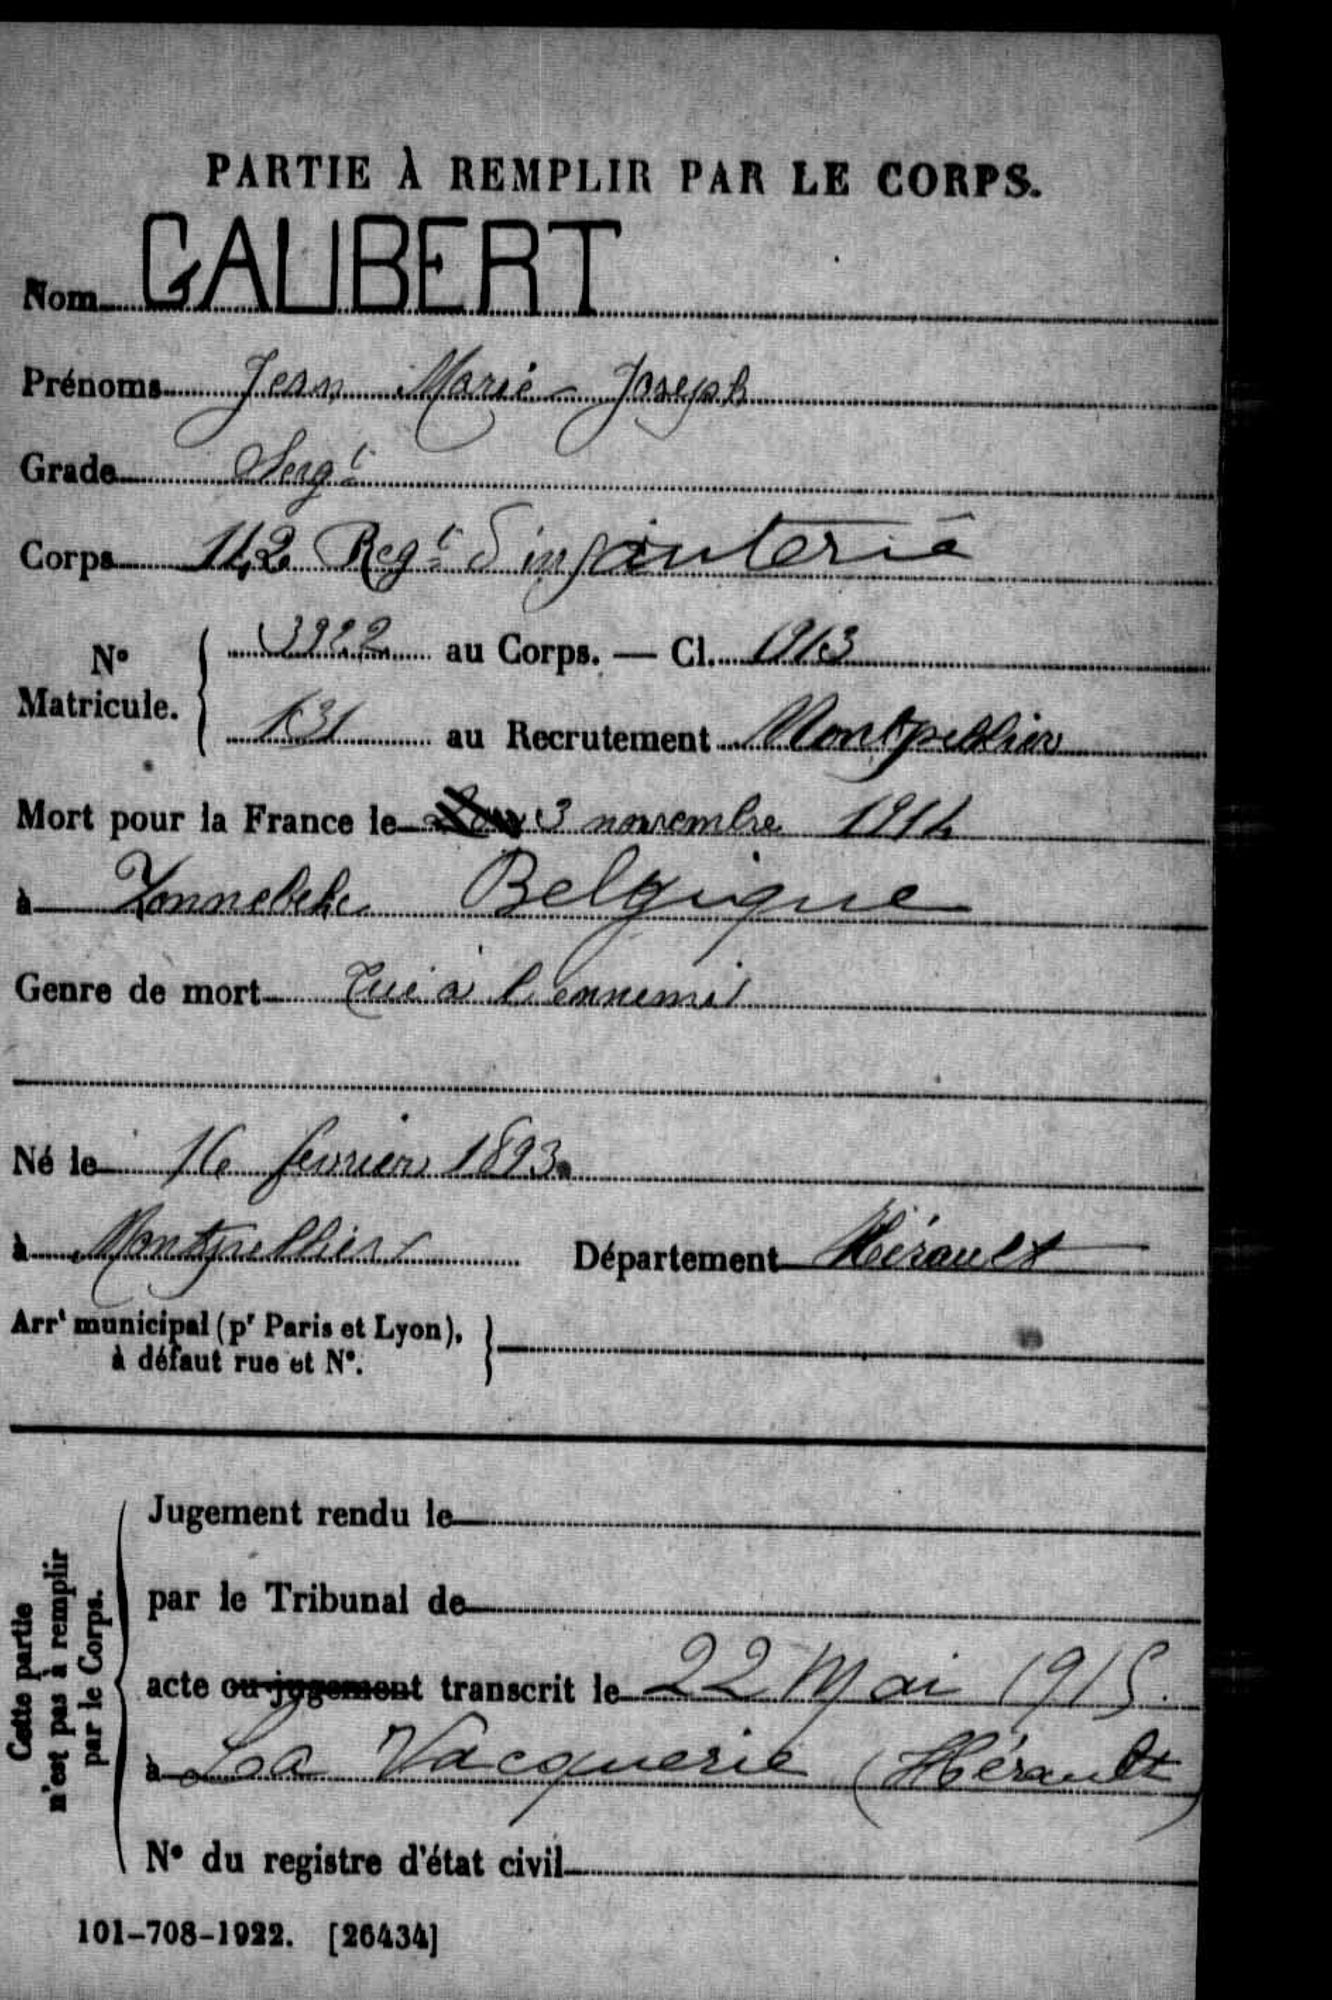 PARTIE À REMPLIR PAR LE CORPS.
Nom GAUBERT
Prénoms Jean Marie Joseph
Grade Sergt
Corps 142 Regt d'infanterie
No Matricule. { 3922 au Corps. — Cl. 1913
131 au Recrutement Montpellier
Mort pour la France le 3 novembre 1914
à Zonnebeke Belgique
Genre de mort Tué à l'ennemi
Né le 16 février 1893
à Montpellier Département Hérault
Arrt municipal (pr Paris et Lyon), à défaut rue et No. }
Cette partie n'est pas à remplir par le Corps.
Jugement rendu le
par le Tribunal de
acte ou jugement transcrit le 22 Mai 1915.
à La Vacquerie (Hérault)
No du registre d'état civil
101-708-1922. [26434]